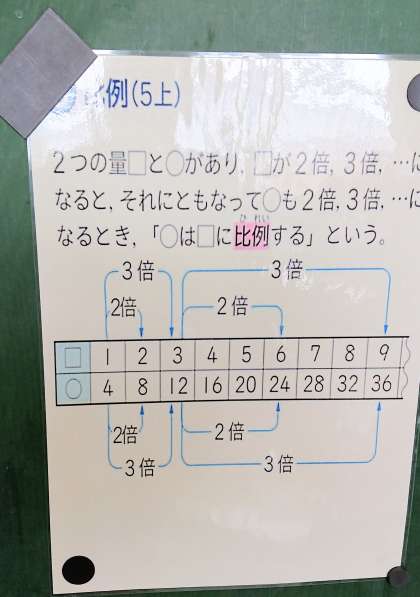 比例(5上)
2つの量□と○があり,□が2倍,3倍,…に
なると,それにともなって○も2倍,3倍,…に
ひれい
なるとき,「○は□に比例する」という。
3倍 3倍
2倍 2倍
□ 1 2 3 4 5 6 7 8 9
○ 4 8 12 16 20 24 28 32 36
2倍 2倍
3倍 3倍